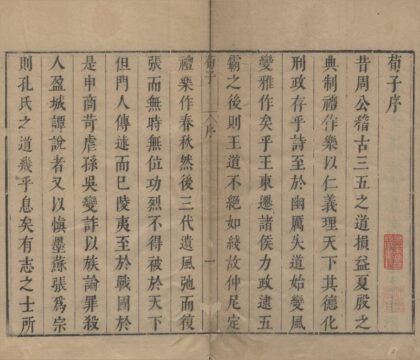 荀子序
昔周公稽古三五之道損益夏殷之
典制禮作樂以仁義理天下其德化
刑政存乎詩至於幽厲失道始變風
變雅作矣平王東遷諸侯力政逮五
霸之後則王道不絕如綫故仲尼定
荀子 序 一
禮樂作春秋然後三代遺風弛而復
張而無時無位功烈不得被於天下
但門人傳述而已陵夷至於戰國於
是申商苛虐孫吳變詐以族論罪殺
人盈城譚說者又以慎墨蘇張爲宗
則孔氏之道幾乎息矣有志之士所